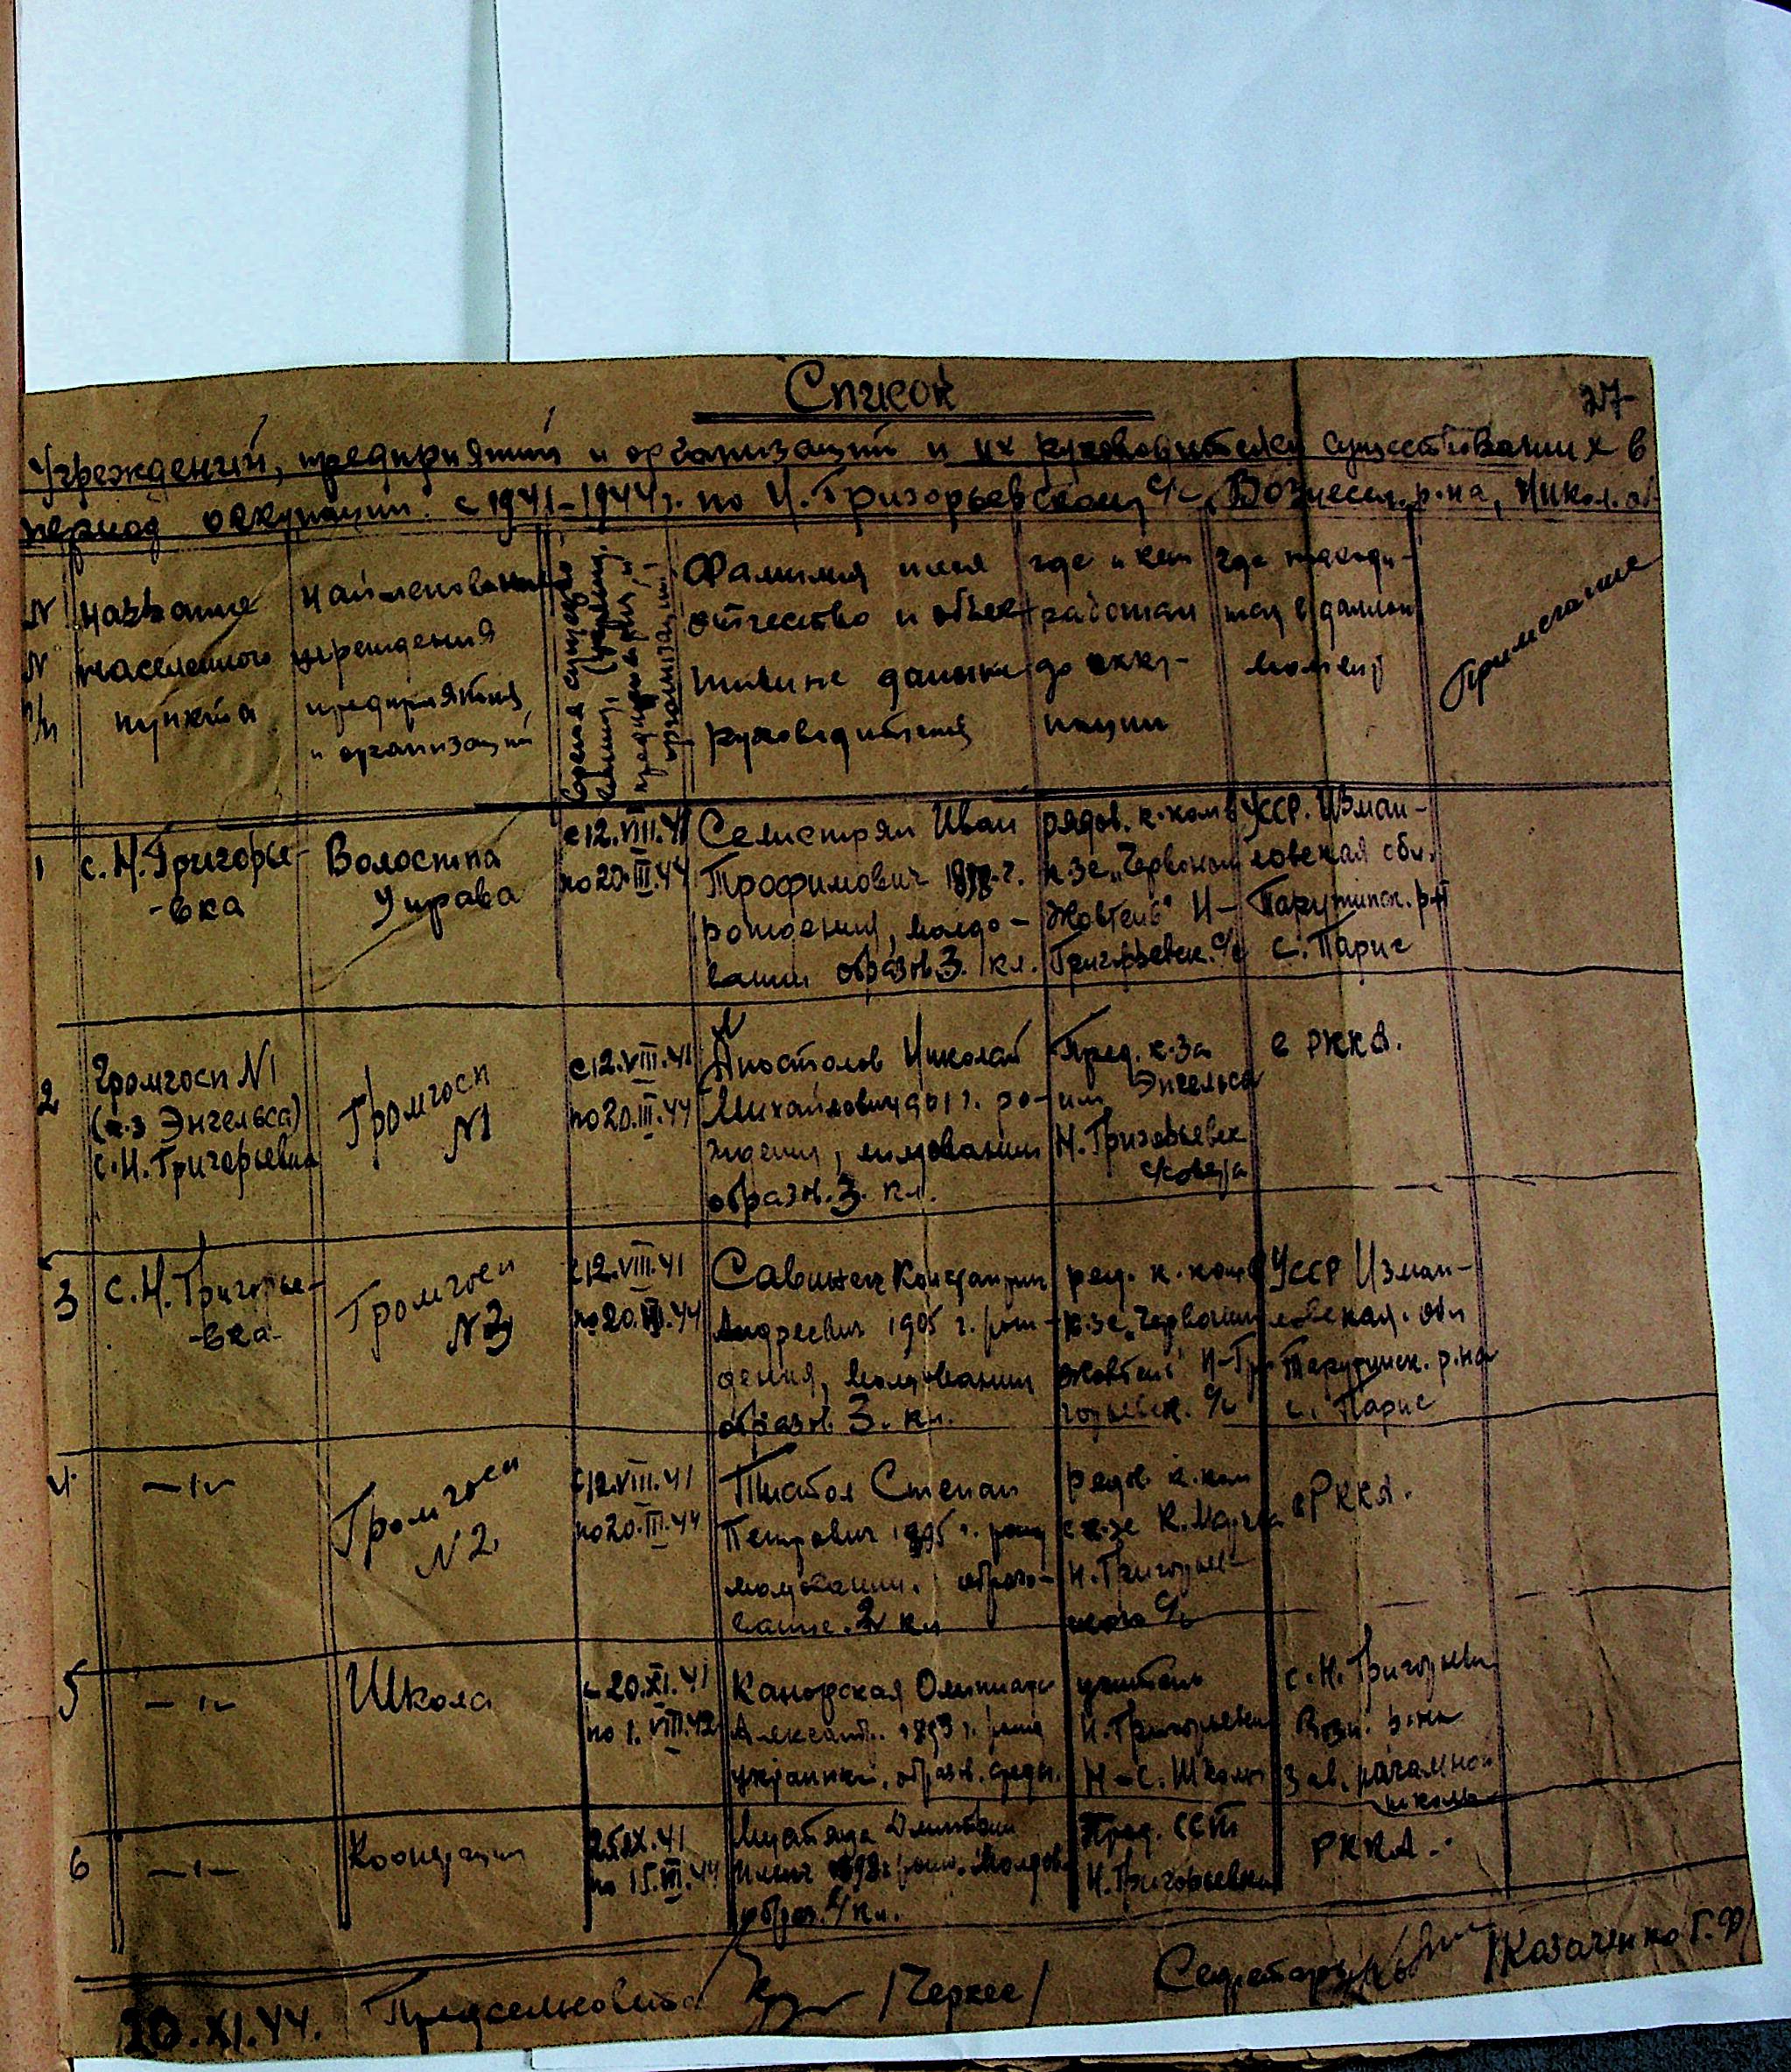 27
Список
Учреждений, предприятий и организаций и их руководителей существовавших в
период оккупации с 1941-1944 г. по Н. Григорьевскому с/с, Вознесен. р-на, Никол. об.
N N п/п
название
населенного
пункта
наименование
учреждения
предприятия,
и организаций
Фамилия имя
отчество и объек-
тивные данные
руководителя
где и кем
работал
до окку-
пации
где находи-
тся в данный
момент
Примечание
1
с. Н. Григорье-
-вка
Волостна
Управа
с 12.VIII.41
по 20.III.44
Семистрял Иван
Трофимович г.
рождения, молдо-
ванин образов. 3. кл.
рядов. к-ком в
к-зе „Червоний
Жовтень" Н-
Григорьевск. с/с
УССР. Измаи-
ловская обл.
Тарутинск. р-н
с. Парис
2
Громгосп N1
(к-з Энгельса)
с. Н. Григорьевка
Громгосп
N1
с 12.VIII.41
по 20.III.44
Апостолов Николай
Михайлович 901 г. ро-
ждения, молдованин
образов. 3. кл.
Пред. к-за
им. Энгельса
Н. Григорьевск
с/совета
в РККА.
3
с. Н. Григорье-
-вка-
Громгосп
N3
с 12.VIII.41
по 20.III.44
Савинец Константин
Андреевич 1905 г. рож-
дения, молдованин
образов 3. кл.
ряд. к. ком в
к-зе „Червоний
Жовтень" Н-Гри-
горьевск. с/с
УССР Измаи-
ловская. обл
Тарутинск. р-на
с. Парис
4
-"-
Громгосп
N2
с 12.VIII.41
по 20.III.44
Степан
Петрович 1895 г. рожд
молдованин. образо-
вание. 2 кл
рядов. к-ком
к-зе К. Маркса
Н. Григорьев-
ского с/с
в РККА.
5
-"-
Школа
с 20.XI.41
по 1.VIII.42
Олимпиада
Александ. 1893 г. рожд
украинка, образов. средн.
учитель
Н. Григорьевка
Н-С. Школы
с. Н. Григорьевка
Возн. р-на
Зав. начальной
школы
6
-"-
Кооперация
41
по 15.III.44
Дмитрий
образ. 4 кл.
Пред. ССТ
Н. Григорьевка
РККА.
20.XI.44. Председ сельсовета /Черкес/ Секретарь /Казаченко Г. Ф/